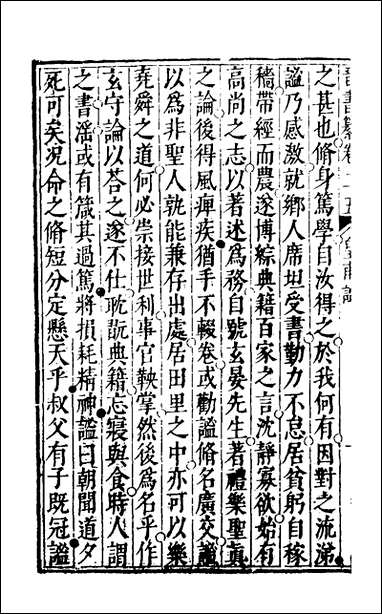 之甚也脩身篤學自汝得之於我何有因對之流涕
謐乃感激就鄉人席坦受書勤力不怠居貧躬自稼
穡帶經而農遂博綜典籍百家之言沈靜寡欲始有
高尚之志以著述爲務自號玄晏先生著禮樂聖眞
之論後得風痺疾猶手不輟卷或勸謐脩名廣交謐
以爲非聖人孰能兼存出處居田里之中亦可以樂
堯舜之道何必崇接世利事官鞅掌然後爲名乎作
玄守論以荅之遂不仕耽翫典籍忘寢與食時人謂
之書淫或有箴其過篤將損耗精神謐曰朝聞道夕
死可矣况命之脩短分定懸天乎叔父有子旣冠謐